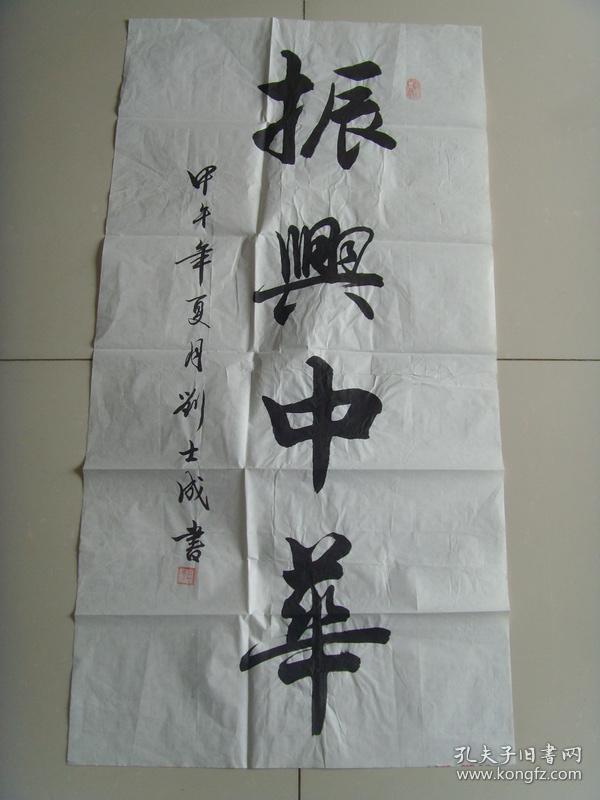 振興中華
甲午年夏月劉士成書
孔夫子旧书网
www.kongfz.com